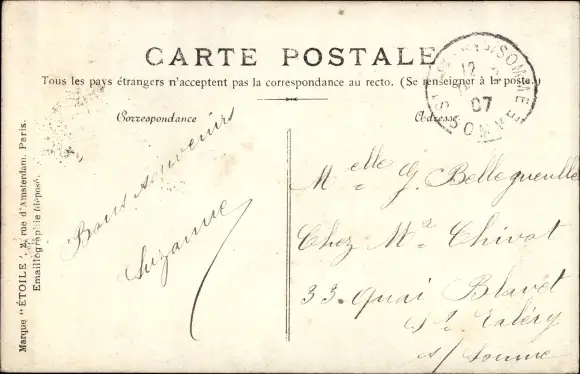 CARTE POSTALE
Tous les pays étrangers n'acceptent pas la correspondance au recto. (Se renseigner à la poste.)
Correspondance
Adresse
12
07
SOMME
Bons souvenirs
Suzanne
Melle G. Bellegueulle
Chez Md Chivot
33. Quai Blavet
St Valéry
s/ Somme
Marque "ÉTOILE", 2, rue d'Amsterdam. Paris.
Emaillographie déposé